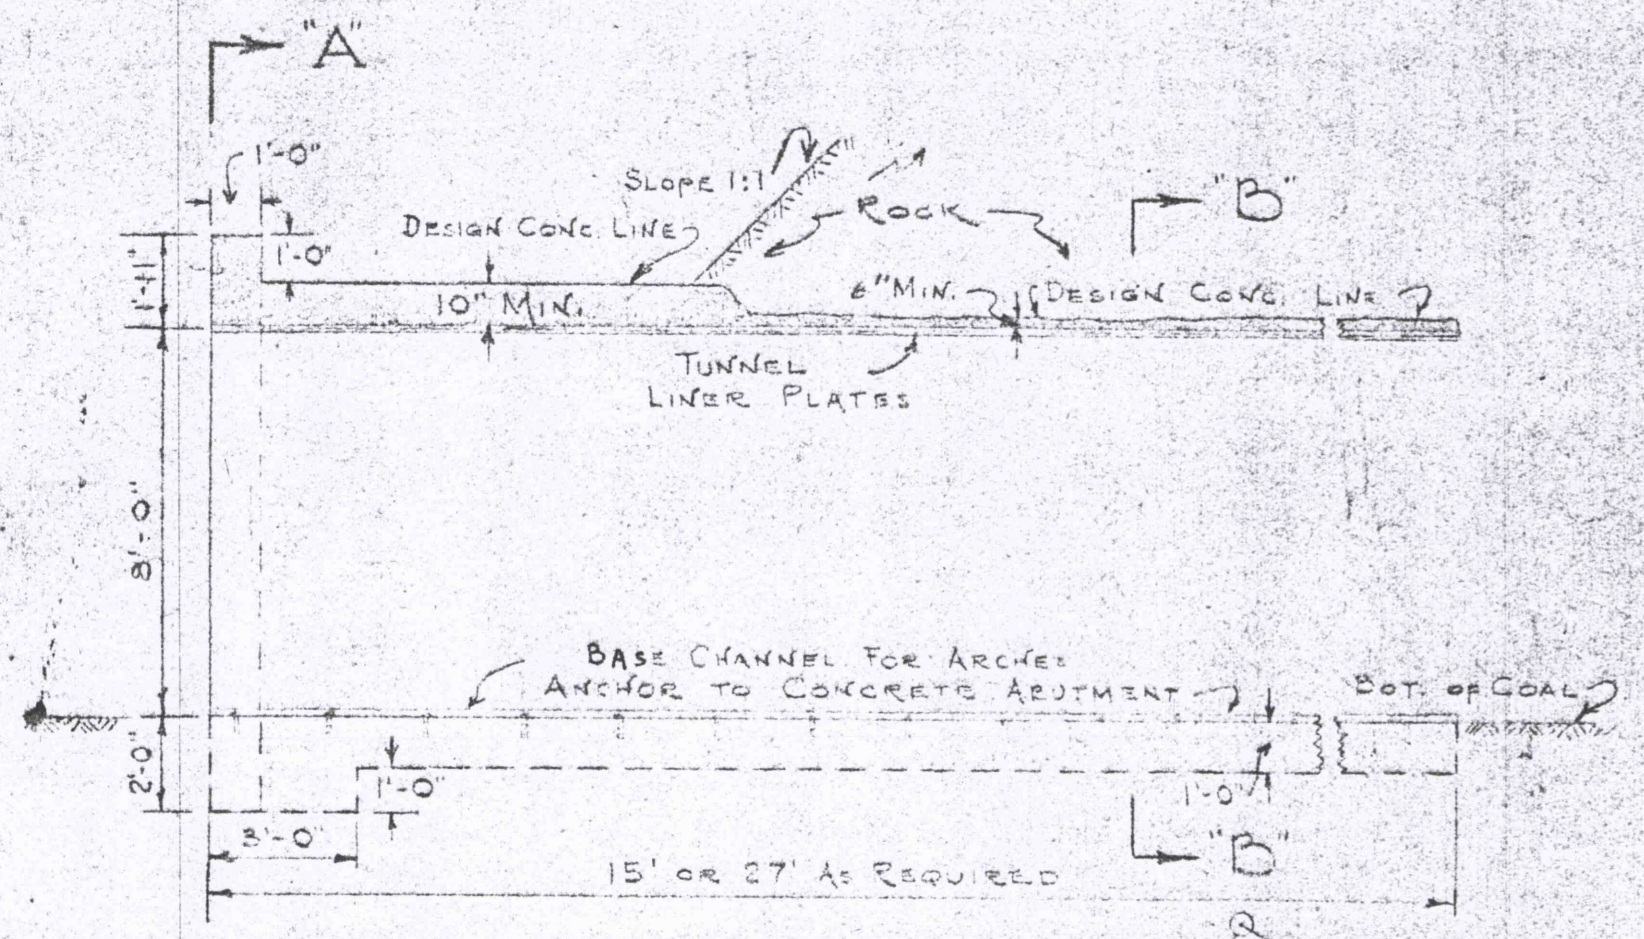 "A"
1'-0"
SLOPE 1:1
ROCK
"B"
DESIGN CONC. LINE
1'-0"
1'-11"
10" MIN.
6" MIN.
DESIGN CONC. LINE
TUNNEL
LINER PLATES
8'-0"
BASE CHANNEL FOR ARCHES
ANCHOR TO CONCRETE ABUTMENT
BOT. OF COAL
2'-0"
1'-0"
1'-0"
3'-0"
"B"
15' OR 27' AS REQUIRED